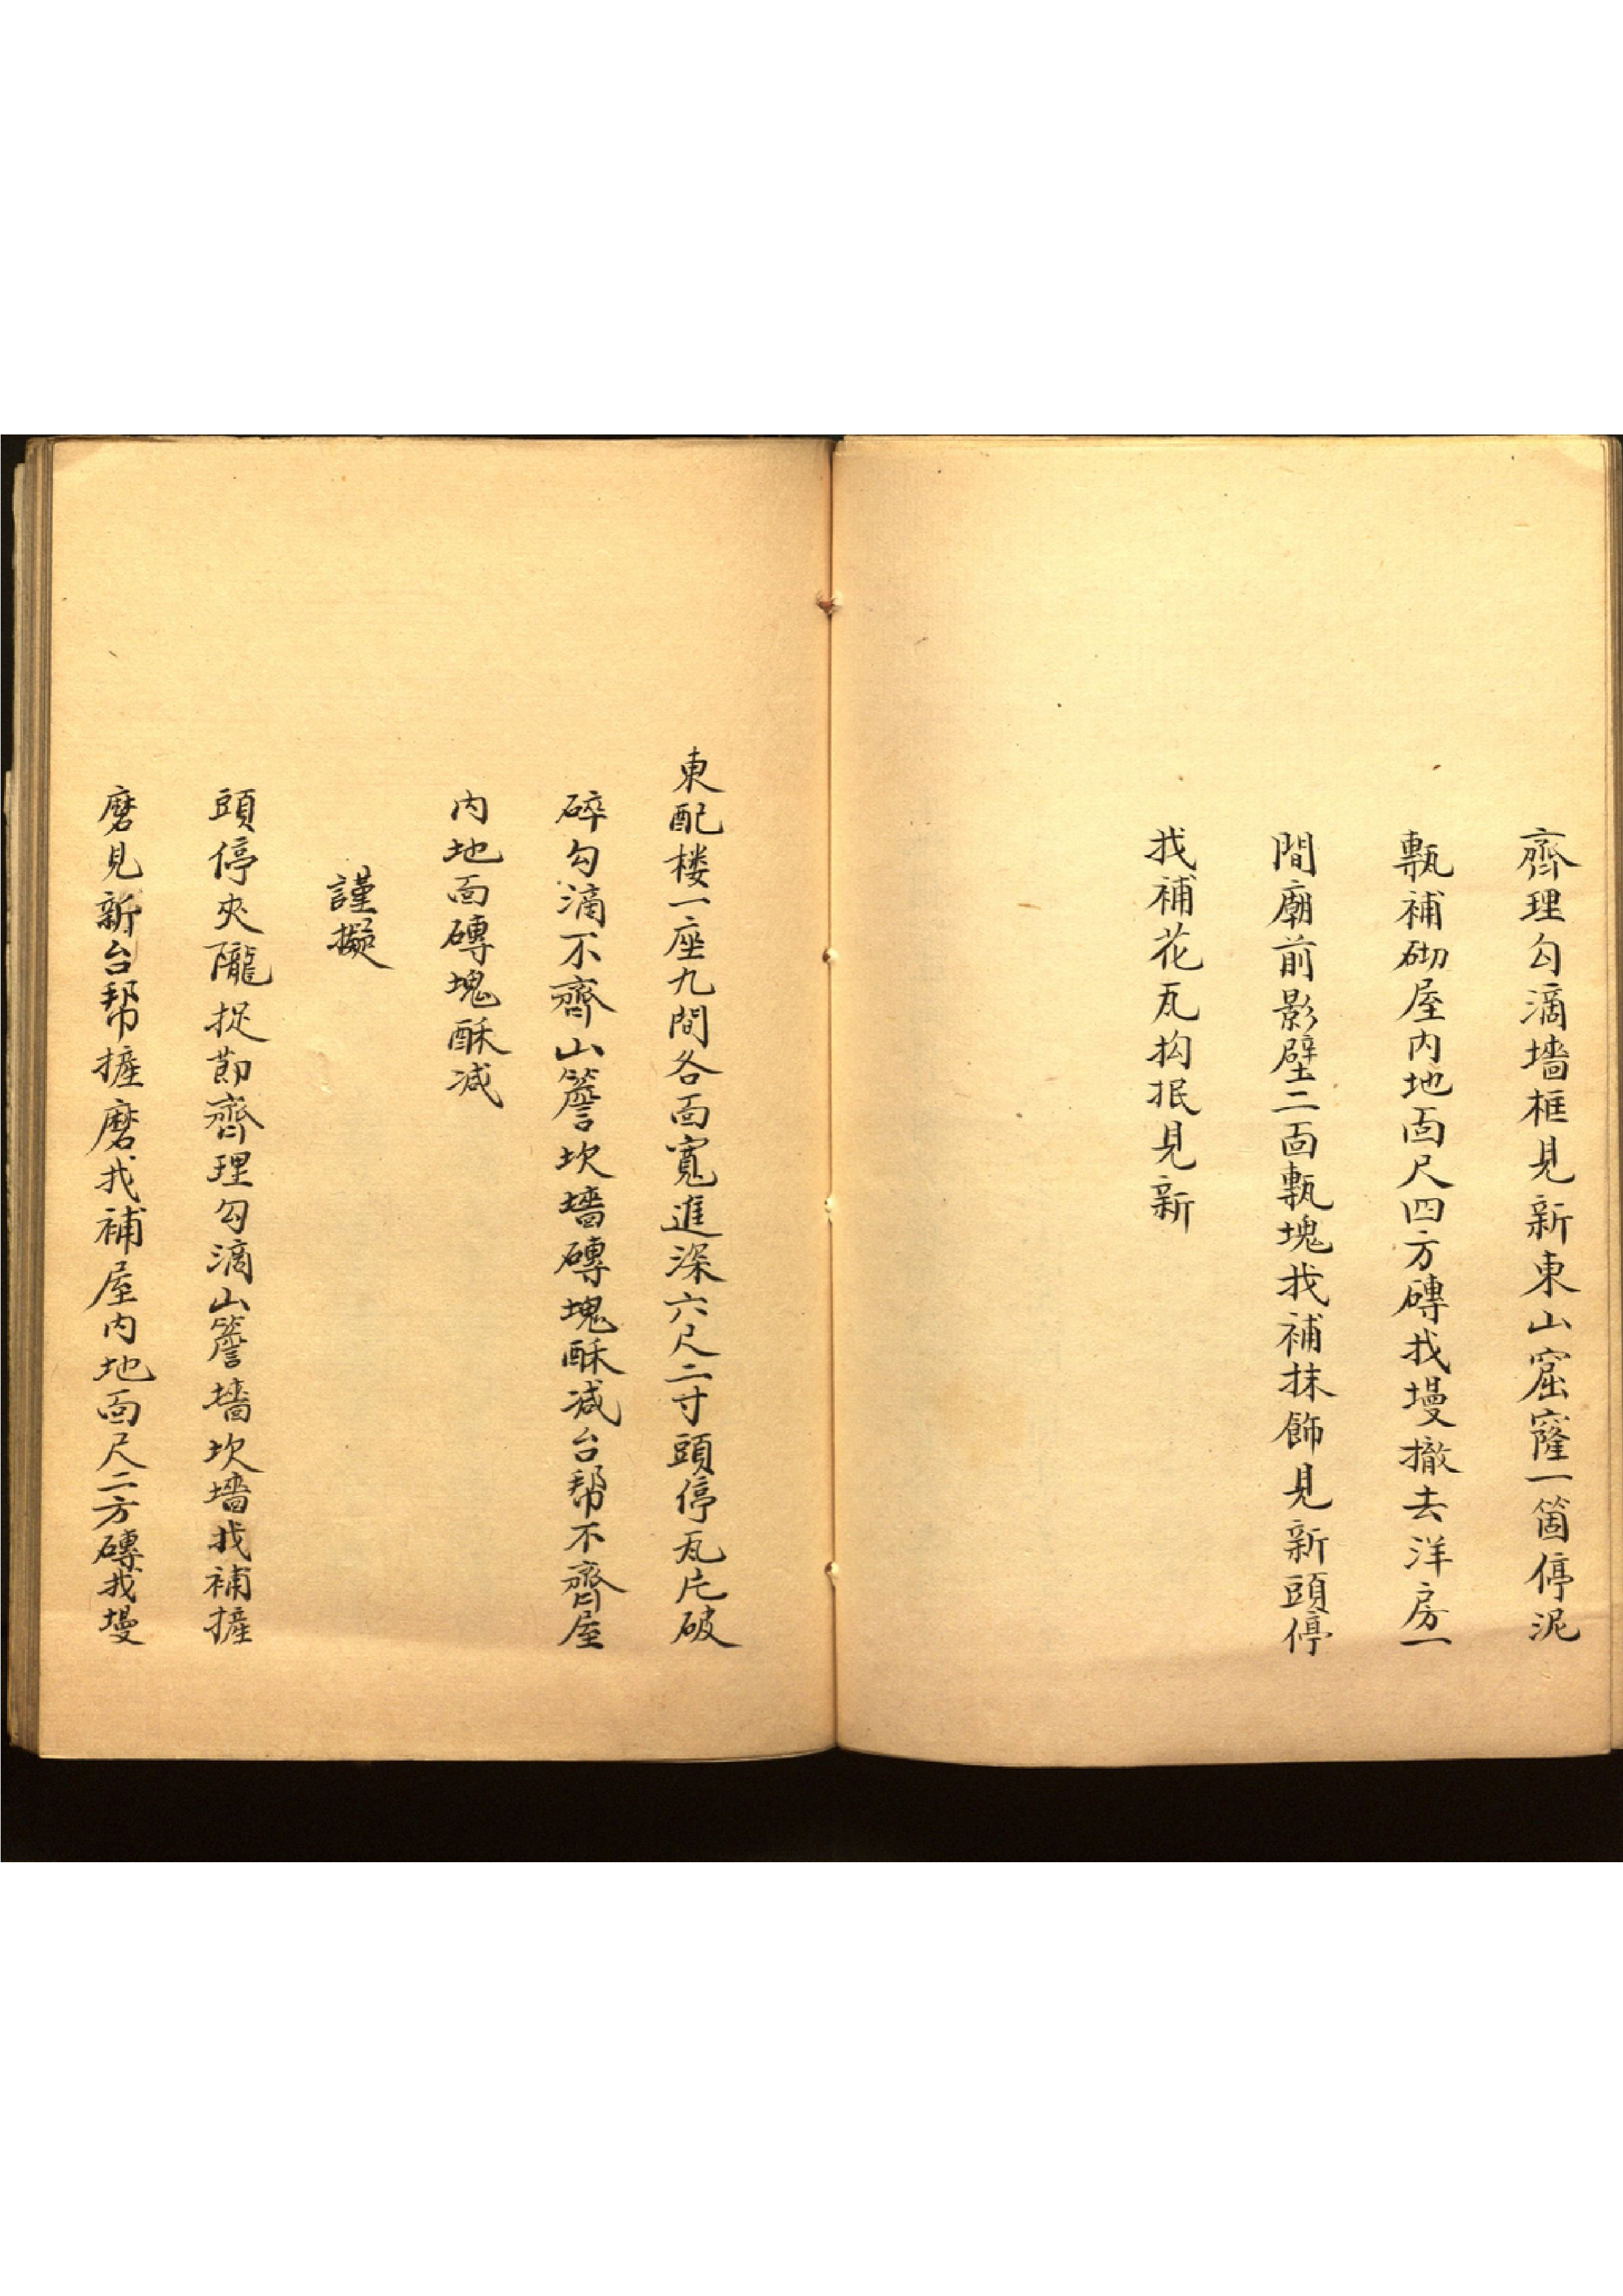 齊理勾滴墻框見新東山窟窿一箇停泥
甎補砌屋内地面尺四方磚找墁撤去洋房一
間廟前影壁二面甎塊找補抹飾見新頭停
找補花瓦抅抿見新
東配楼一座九間各面寬進深六尺二寸頭停瓦片破
碎勾滴不齊山簷坎墻磚塊酥减台幫不齊屋
内地面磚塊酥减
謹擬
頭停夾隴捉莭齊理勾滴山簷墻坎墻找補摌
磨見新台幫摌磨找補屋内地面尺二方磚找墁